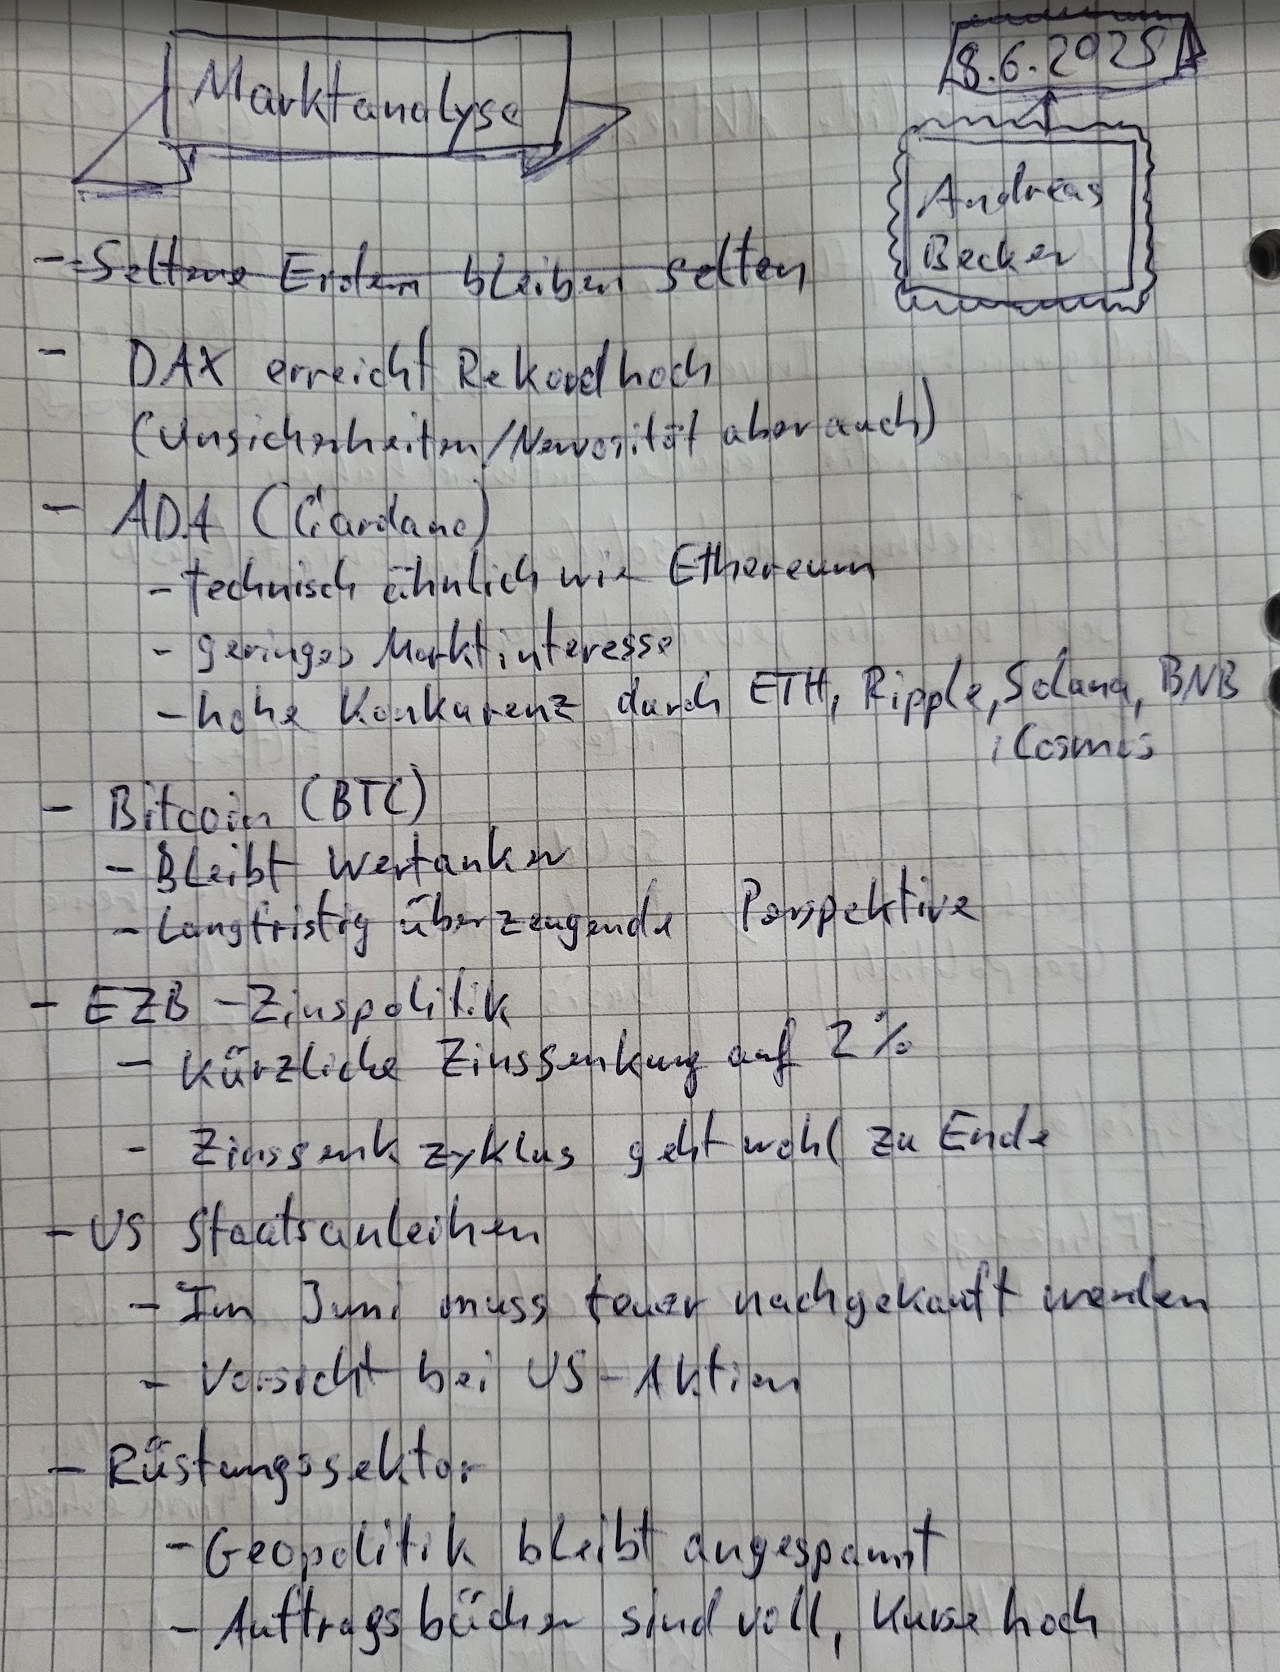 Marktanalyse
8.6.2025
Andreas
Becker
- Seltene Erden bleiben selten
- DAX erreicht Rekordhoch
(Unsicherheiten/Nervosität aber auch)
- ADA (Cardano)
- technisch ähnlich wie Ethereum
- geringes Marktinteresse
- hohe Konkurenz durch ETH, Ripple, Solana, BNB
, Cosmos
- Bitcoin (BTC)
- Bleibt Wertanker
- Langfristig überzeugende Perspektive
- EZB-Zinspolitik
- Kürzliche Zinssenkung auf 2%
- Zinssenkzyklus geht wohl zu Ende
- US Staatsanleihen
- Im Juni muss teuer nachgekauft werden
- Vorsicht bei US-Aktien
- Rüstungssektor
- Geopolitik bleibt angespannt
- Auftragsbücher sind voll, Kurse hoch